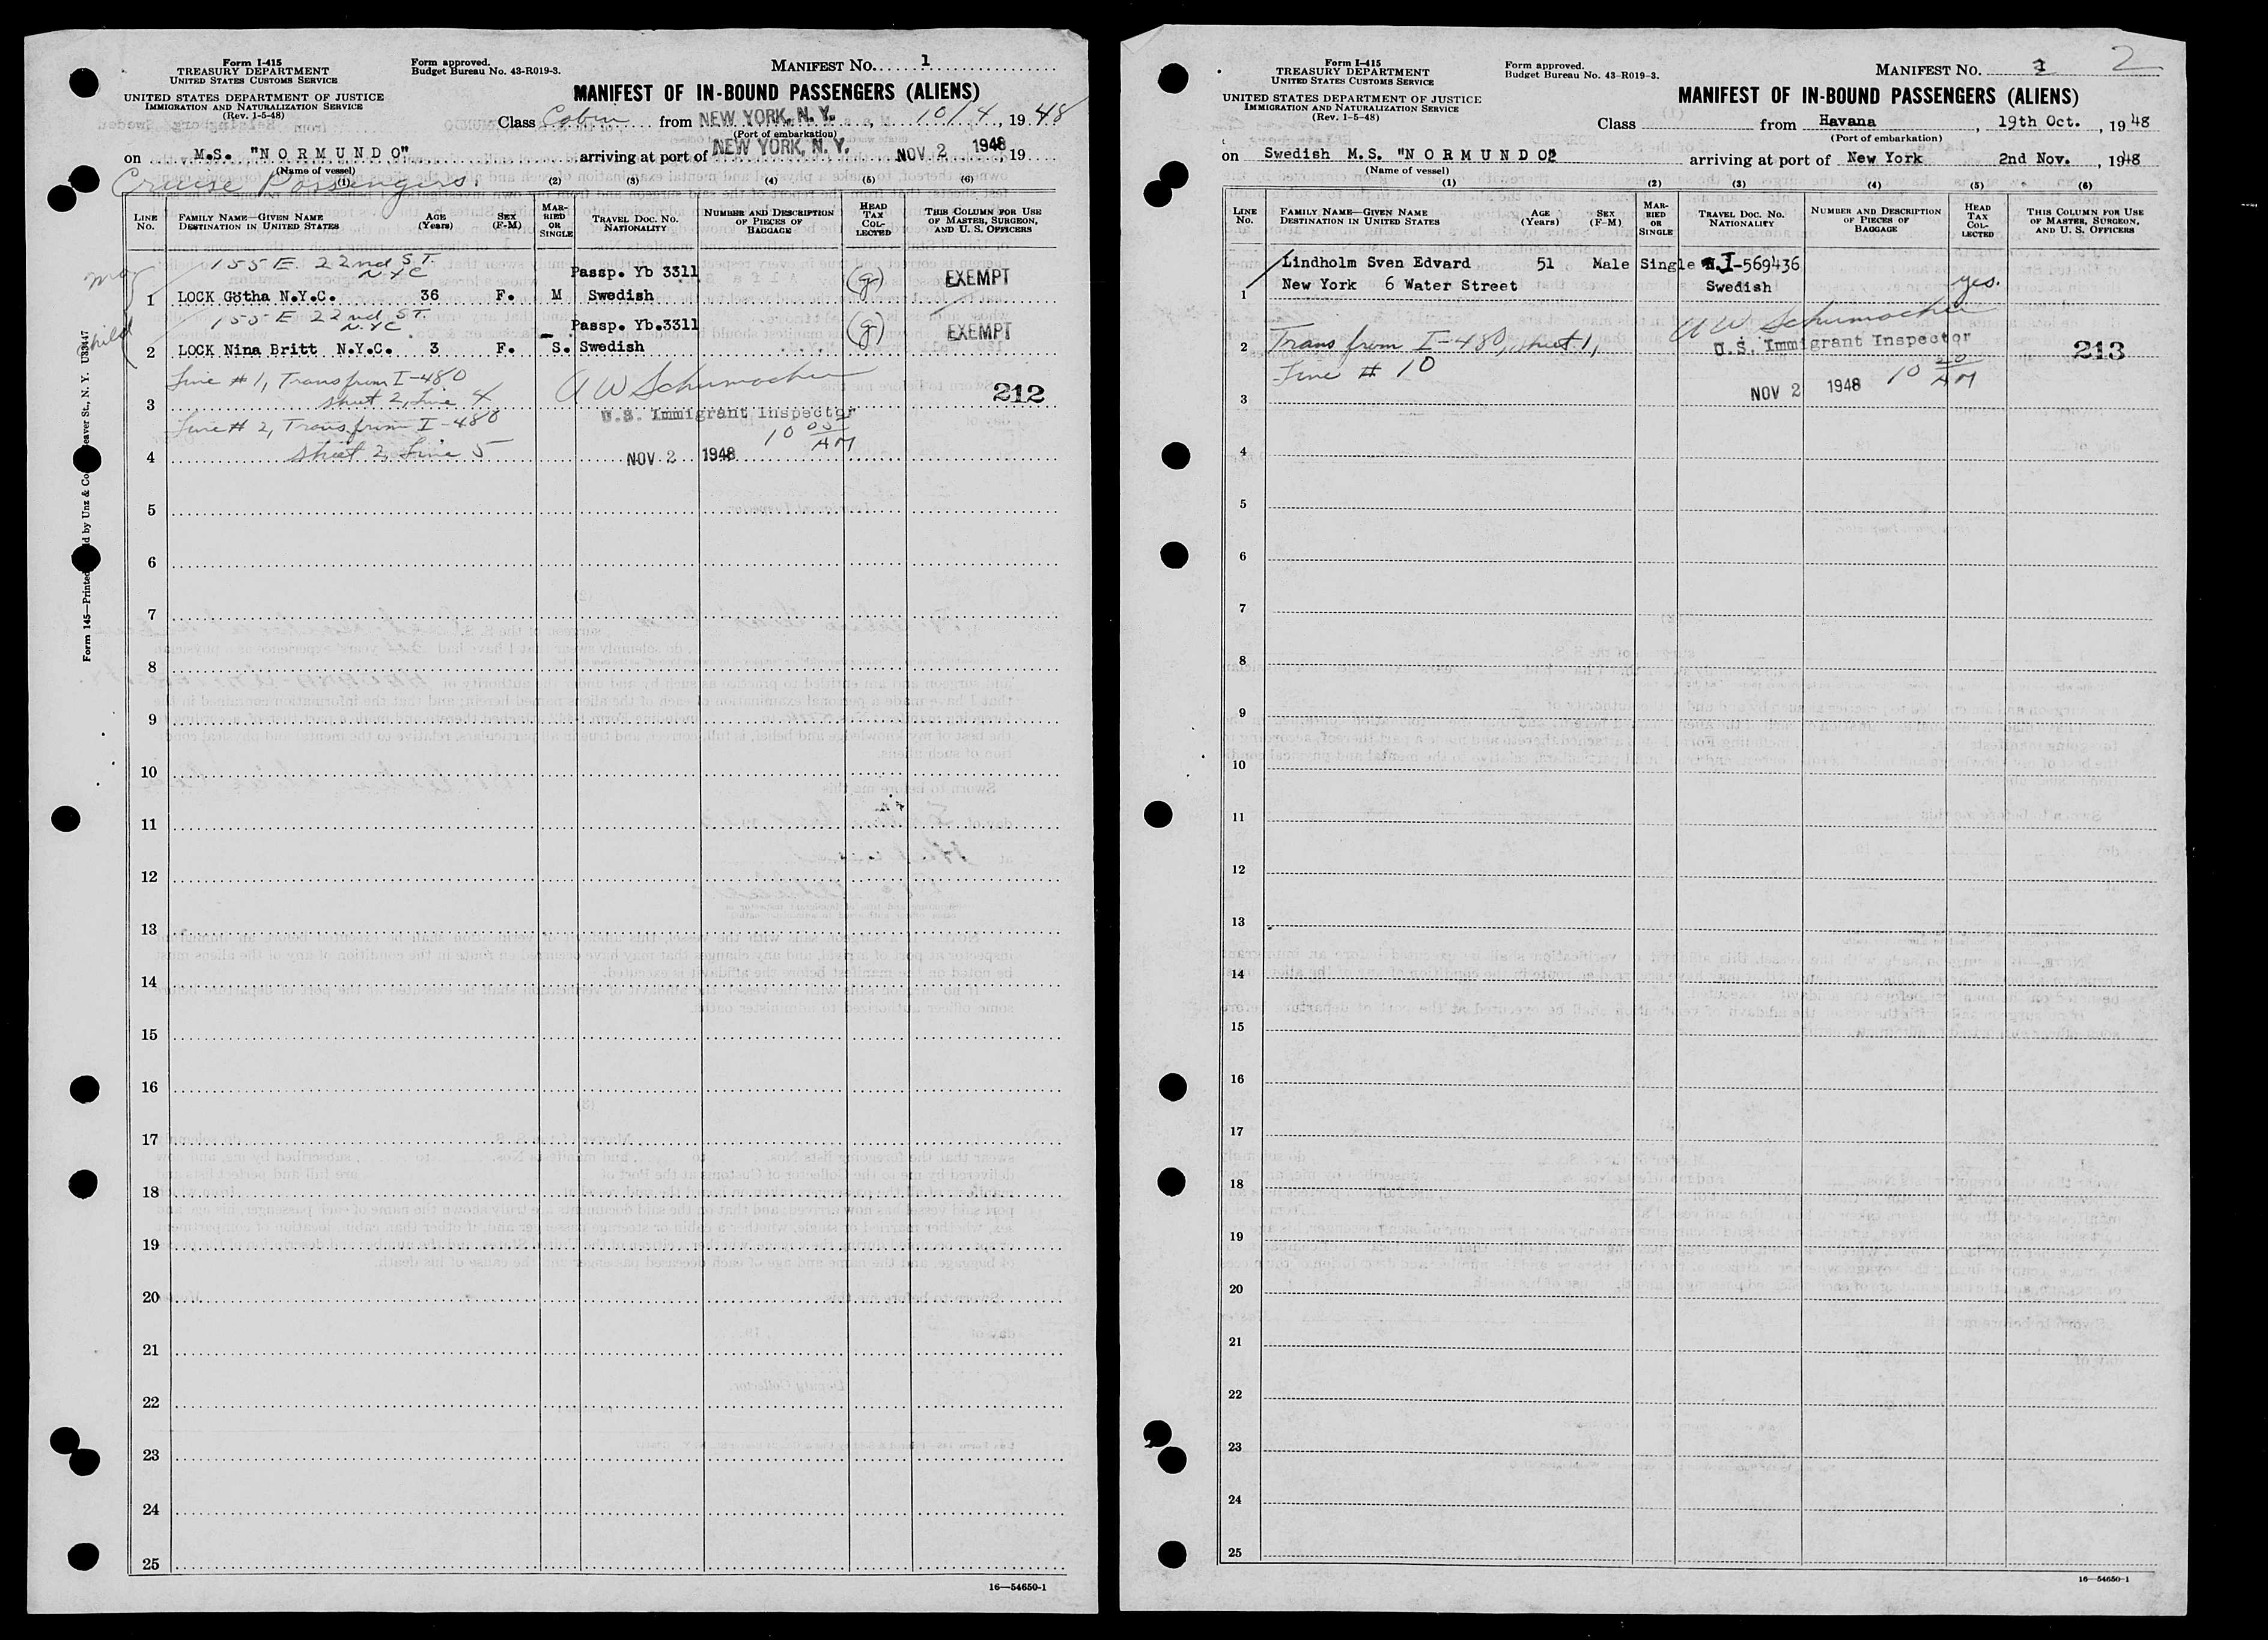 Form I-415
TREASURY DEPARTMENT
UNITED STATES CUSTOMS SERVICE
UNITED STATES DEPARTMENT OF JUSTICE
IMMIGRATION AND NATURALIZATION SERVICE
(Rev. 1-5-48)
Form approved.
Budget Bureau No. 43-R019-3.
MANIFEST NO. 1
MANIFEST OF IN-BOUND PASSENGERS (ALIENS)
Class Cabin from NEW YORK, N. Y., 10/4, 1948
(Port of embarkation)
on M.S. "NORMUNDO" arriving at port of NEW YORK, N. Y. NOV 2 1948, 19
(Name of vessel)
Cruise Passengers.
(1) (2) (3) (4) (5) (6)
LINE No. FAMILY NAME—GIVEN NAME DESTINATION IN UNITED STATES AGE (Years) SEX (F-M) MARRIED OR SINGLE TRAVEL DOC. NO. NATIONALITY NUMBER AND DESCRIPTION OF PIECES OF BAGGAGE HEAD TAX COLLECTED THIS COLUMN FOR USE OF MASTER, SURGEON, AND U. S. OFFICERS
155 E. 22nd ST.
NYC
Passp. Yb 3311 (g) EXEMPT
1 LOCK Götha N.Y.C. 36 F. M Swedish
155 E 22nd ST.
N.Y.C
Passp. Yb.3311 (g) EXEMPT
child
2 LOCK Nina Britt N.Y.C. 3 F. S. Swedish
Line #1, Trans from I-480
sheet 2, Line 4
A W Schumacher
212
3
U.S. Immigrant Inspector
Line # 2, Trans. from I-480
sheet 2, Line 5
10 05 AM
4 NOV 2 1948
5
6
7
8
9
10
11
12
13
14
15
16
17
18
19
20
21
22
23
24
25
16—54650-1
Form 145—Printed
d by Unz & Co
eaver St., N. Y. U33447
Form I-415
TREASURY DEPARTMENT
UNITED STATES CUSTOMS SERVICE
UNITED STATES DEPARTMENT OF JUSTICE
IMMIGRATION AND NATURALIZATION SERVICE
(Rev. 1-5-48)
Form approved.
Budget Bureau No. 43-R019-3.
MANIFEST NO. 2
MANIFEST OF IN-BOUND PASSENGERS (ALIENS)
Class from Havana, 19th Oct., 1948
(Port of embarkation)
on Swedish M.S. "NORMUNDO" arriving at port of New York 2nd Nov., 1948
(Name of vessel)
(1) (2) (3) (4) (5) (6)
LINE No. FAMILY NAME—GIVEN NAME DESTINATION IN UNITED STATES AGE (Years) SEX (F-M) MARRIED OR SINGLE TRAVEL DOC. NO. NATIONALITY NUMBER AND DESCRIPTION OF PIECES OF BAGGAGE HEAD TAX COLLECTED THIS COLUMN FOR USE OF MASTER, SURGEON, AND U. S. OFFICERS
Lindholm Sven Edvard 51 Male Single I-569436
1 New York 6 Water Street Swedish yes.
A W Schumacher
2 Trans from I-480, sheet 1, U.S. Immigrant Inspector 213
Line # 10
10 20 AM
3 NOV 2 1948
4
5
6
7
8
9
10
11
12
13
14
15
16
17
18
19
20
21
22
23
24
25
16—54650-1